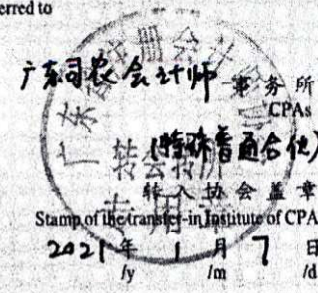 erred to
广东司农会计师事务所
CPAs
(特殊普通合伙)
转入协会盖章
Stamp of the transfer-in Institute of CPA
2021年1月7日
/y /m /d
转会转所